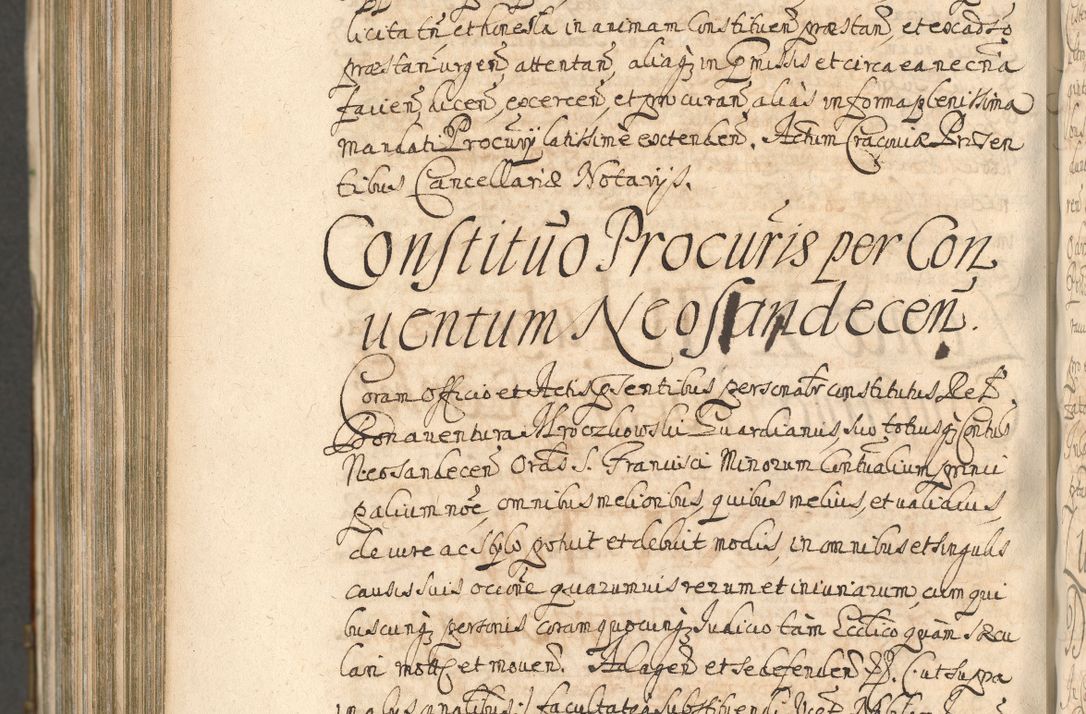 licita tñ et honesta in animam Constituen̄ præstan̄, et excadẽo
præstan̄ urgen̄ attentan̄, aliaq; in p̱missis et circa ea necña
facien̄, dicen̄, excercen̄, et procuran̄ aliàs in forma plenissima
mandati Procurÿ latissimè extenden̄. Actum Cracoviæ Præsen
tibus Cancellariæ Notarijs.
Constitũo Procũris per Con
uentum Neosandecen̄.
Coram Officio et Actis p̱sentibus personalr̃ constitutus Re P.
Bonauentura Mroczkowski Guardianus, suo totiusq; Contus
Neosandecen̄ Ordis S. Francisci Minorum Conũalium princi
palium nõe, omnibus melioribus, quibus melius, et ualidius,
de iure ac stylo potuit et debuit modis, in omnibus et singulis
causis suis occõne quarumuis rerum et iniuriarum, cum qui
buscunq; personis coram quocunq; Iudicio tàm Ecclico quàm Sæcu
lari mot; et mouen̄. Ad agen̄ et se defenden̄ PP. (: ut supra
in alijs similibus :) facultatq; substituendi